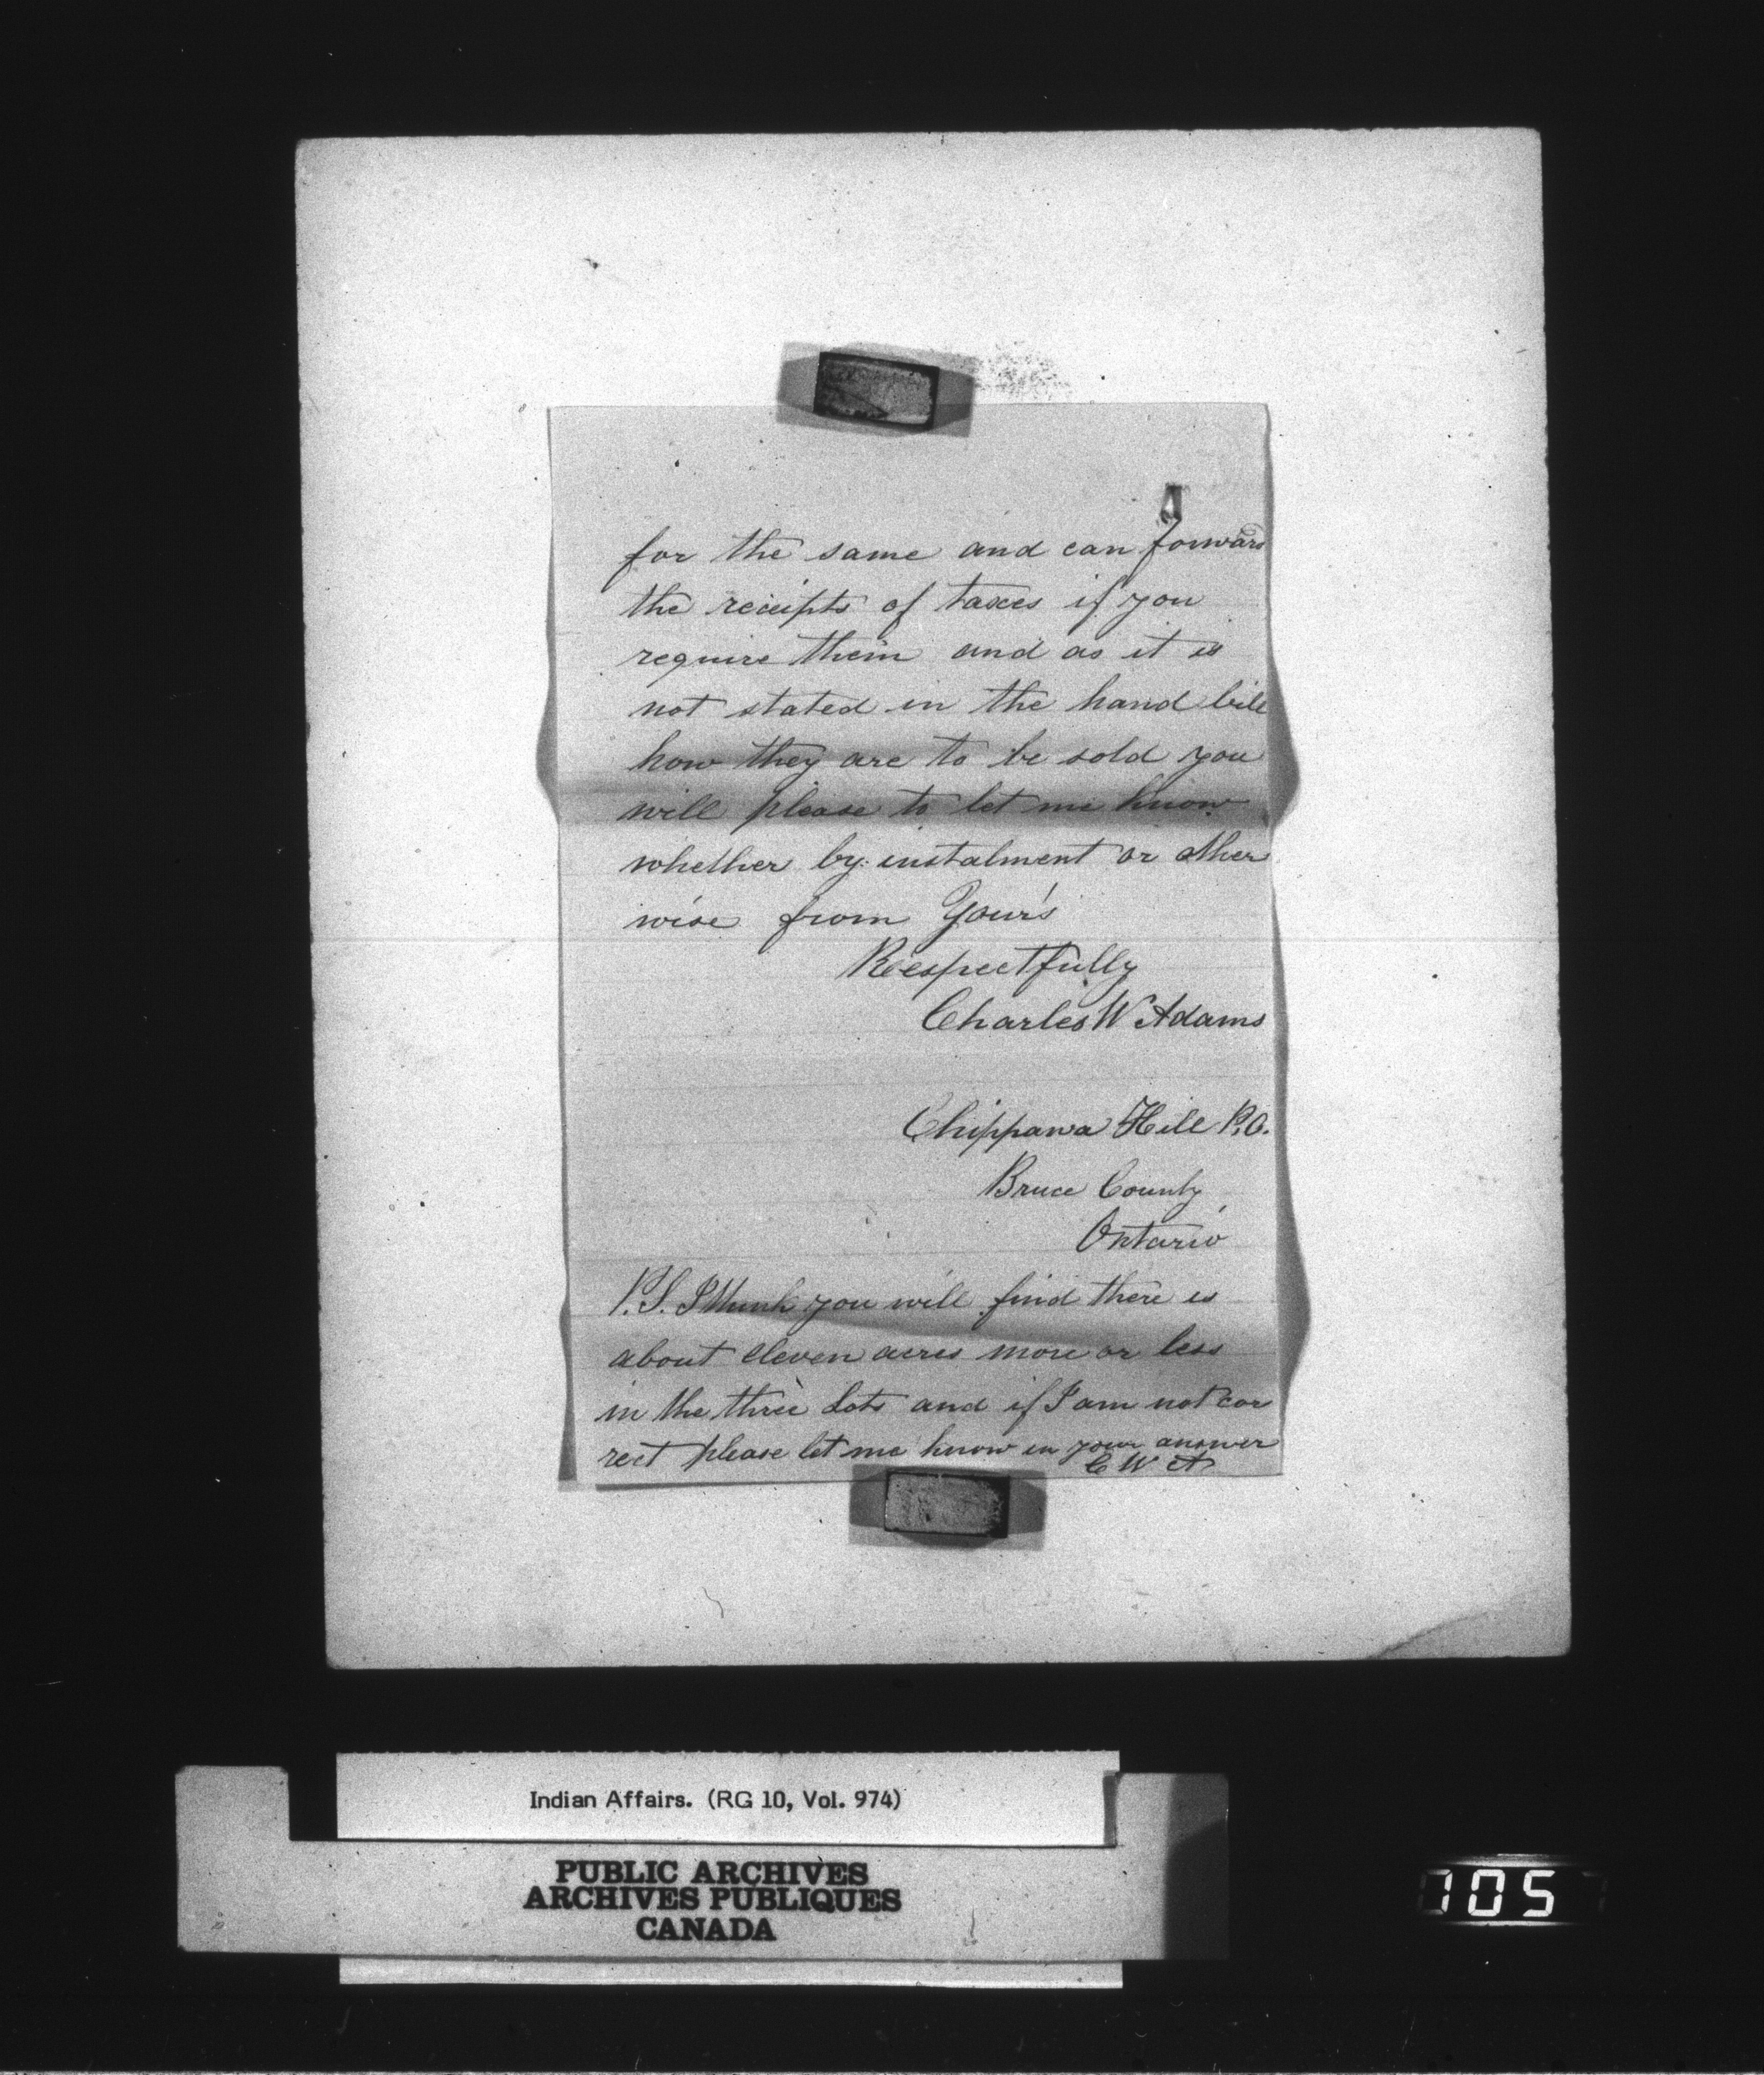 for the same and can forward
the reciepts of taxes if you
require them and as it is
not stated in the hand bill
how they are to be sold you
will please to let me know
whether by instalment or other
wise from Your's
Respectfully
Charles W Adams
Chippawa Hill P.O.
Bruce County
Ontario
P.S. I think you will find there is
about eleven acres more or less
in the three Lots and if I am not cor
rect please let me know in your answer
C W A
Indian Affairs. (RG 10, Vol. 974)
PUBLIC ARCHIVES
ARCHIVES PUBLIQUES
CANADA
105